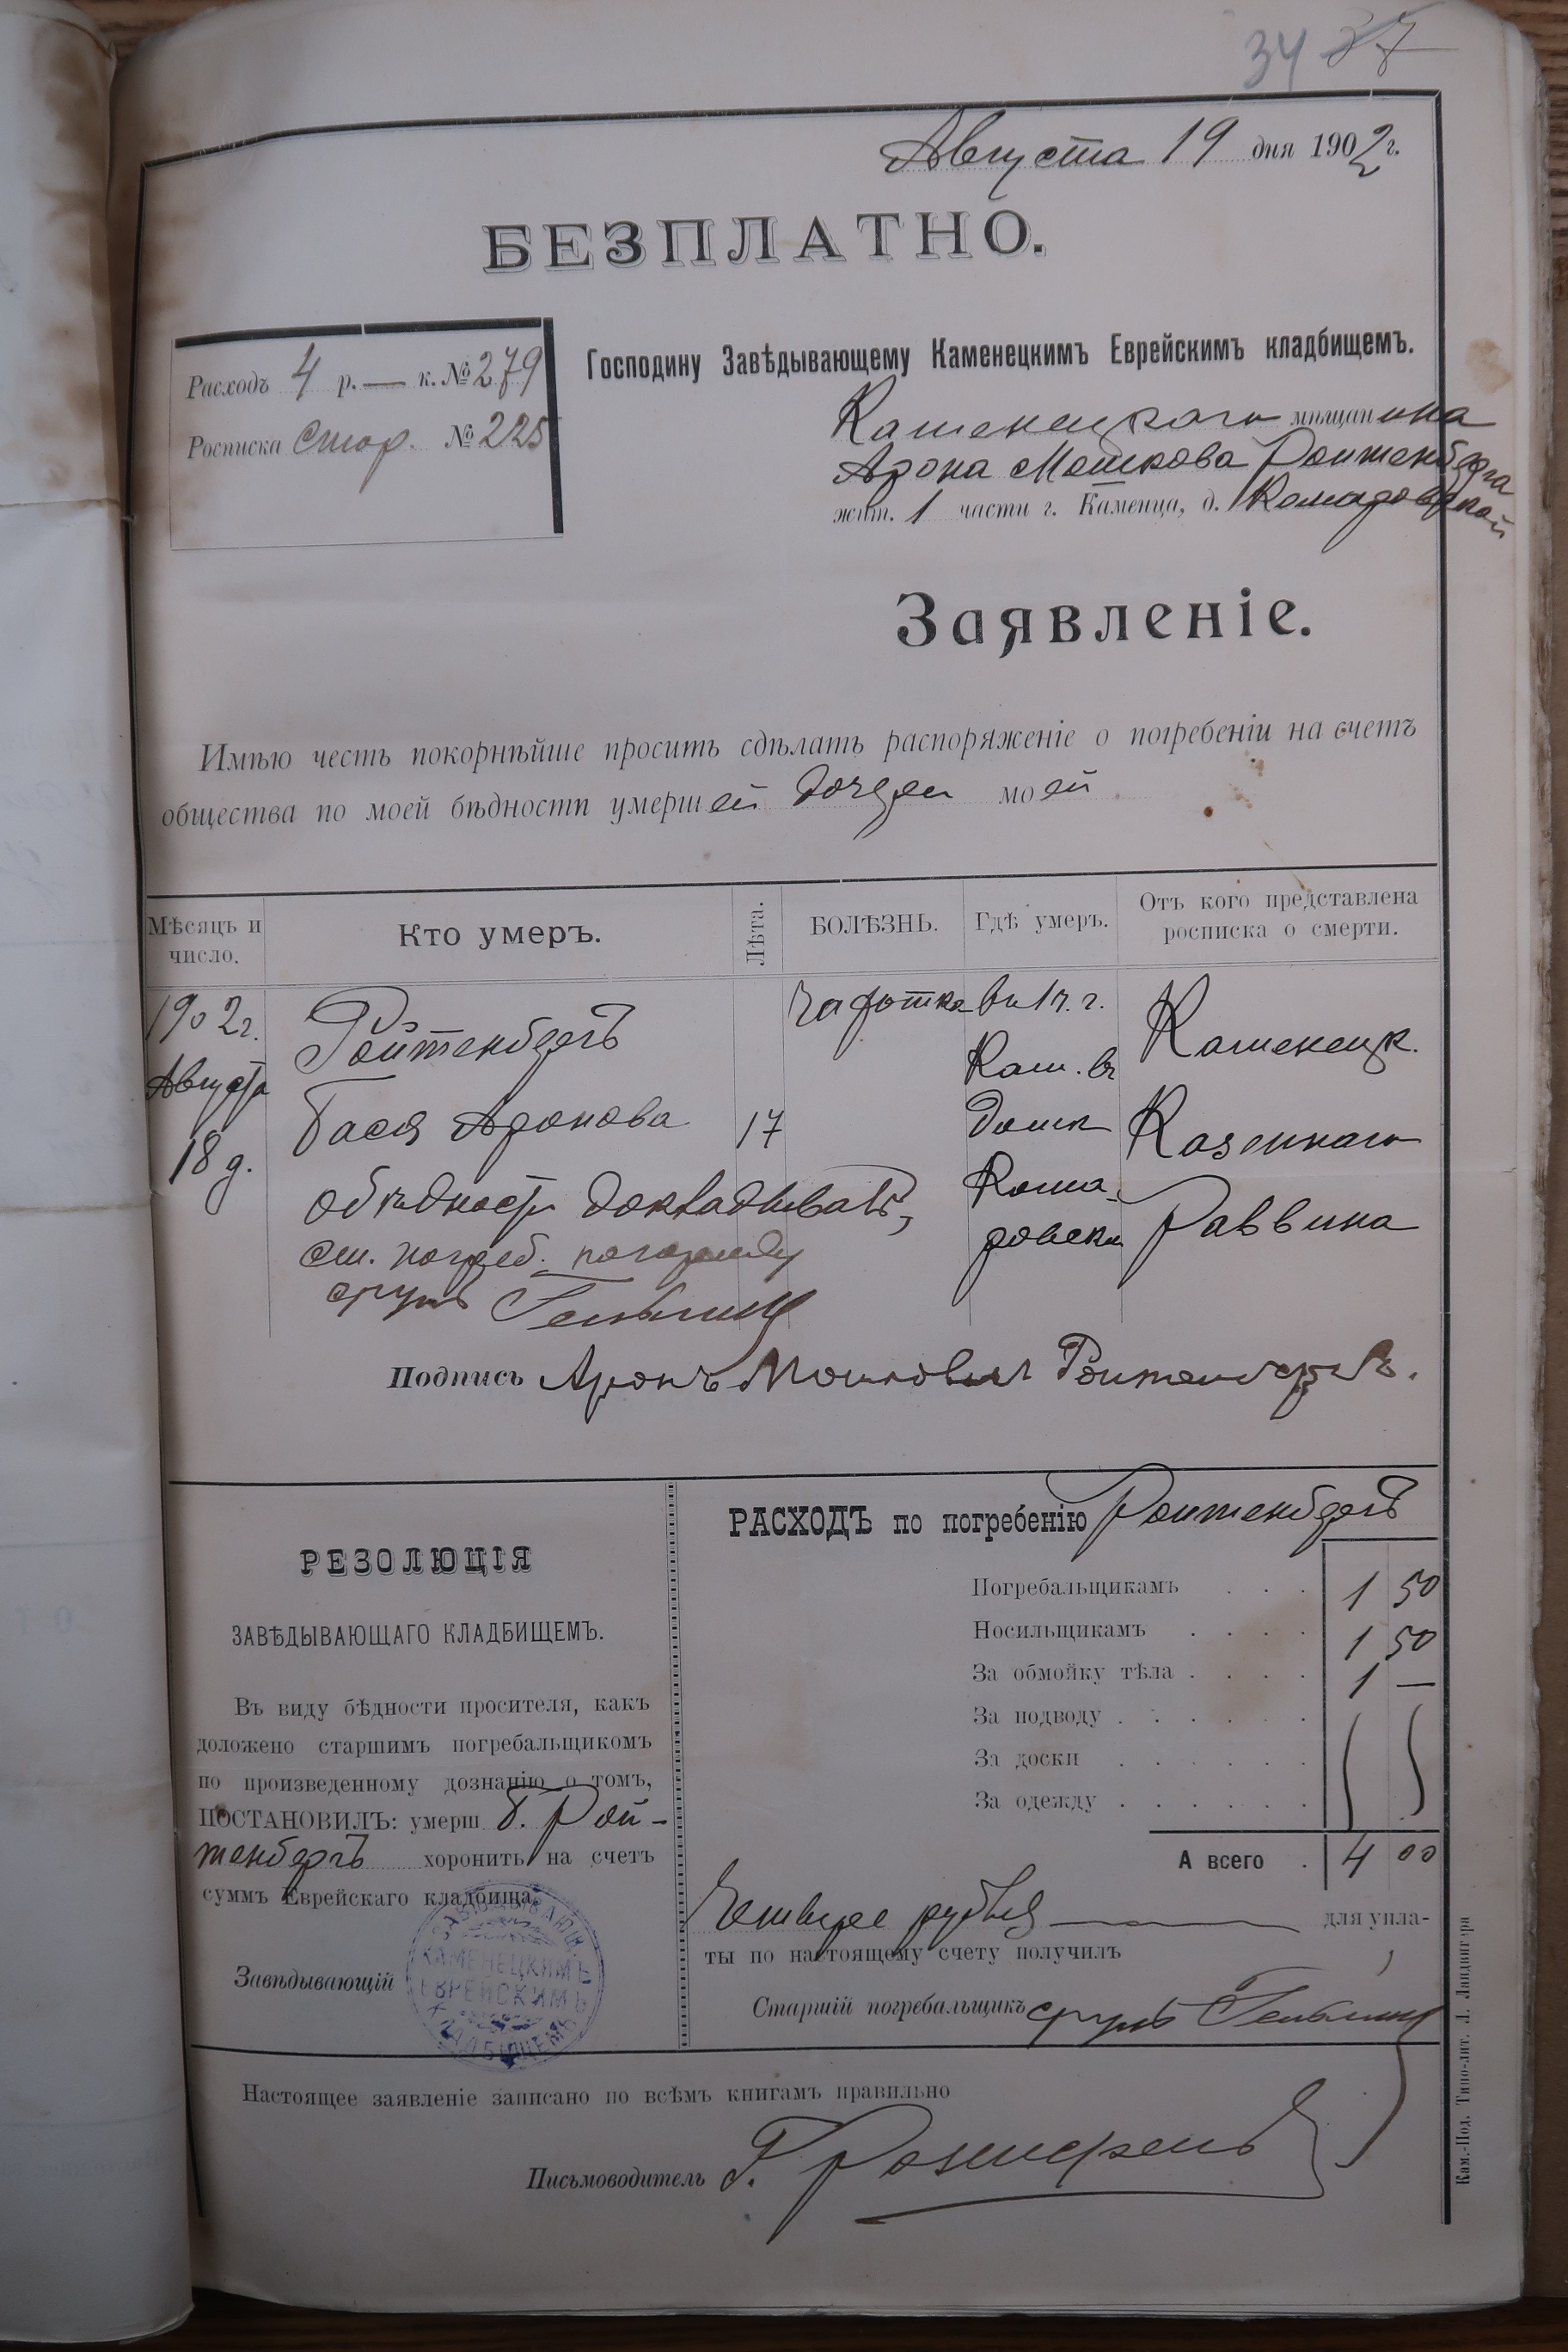 34 37
Августа 19 дня 1902 г.
БЕЗПЛАТНО.
Расходъ 4 р. — к. № 279
Росписка стор. № 225
Господину Завѣдывающему Каменецкимъ Еврейскимъ кладбищемъ.
Каменецкаго мѣщанина
Арона Мошкова Ройтенберга
жит. 1 части г. Каменца, д.
Заявленіе.
Имѣю честь покорнѣйше просить сдѣлать распоряженіе о погребеніи на счетъ
общества по моей бѣдности умершей дочери моей
Мѣсяцъ и число. Кто умеръ. Лѣта. БОЛѢЗНЬ. Гдѣ умеръ. Отъ кого представлена росписка о смерти.
1902 г. Ройтенбергъ чахотка въ 1 ч. г. Каменецк.
Августа Кам. въ
18 д. Бася Аронова 17 домѣ Казеннаго
Раввина
о бѣдности докладывалъ,
ст. погреб.
Сруль
Подпись Аронъ Мошковичъ Ройтенбергъ.
РЕЗОЛЮЦІЯ
ЗАВѢДЫВАЮЩАГО КЛАДБИЩЕМЪ.
Въ виду бѣдности просителя, какъ
доложено старшимъ погребальщикомъ
по произведенному дознанію о томъ,
ПОСТАНОВИЛЪ: умерш Б. Рой-
тенбергъ хоронить на счетъ
суммъ Еврейскаго кладбища.
Завѣдывающій
ЗАВѢДЫВАЮЩ. КАМЕНЕЦКИМЪ ЕВРЕЙСКИМЪ КЛАДБИЩЕМЪ
РАСХОДЪ по погребенію Ройтенбергъ
Погребальщикамъ . . . 1 50
Носильщикамъ . . . . 1 50
За обмойку тѣла . . . . 1 —
За подводу . . . . . .
За доски . . . . . .
За одежду . . . . . .
А всего . 4 00
Четыре рубля — для упла-
ты по настоящему счету получилъ
Старшій погребальщикъ Сруль
Настоящее заявленіе записано по всѣмъ книгамъ правильно
Письмоводитель
Кам.-Под. Типо-лит. Л. Ландвигера